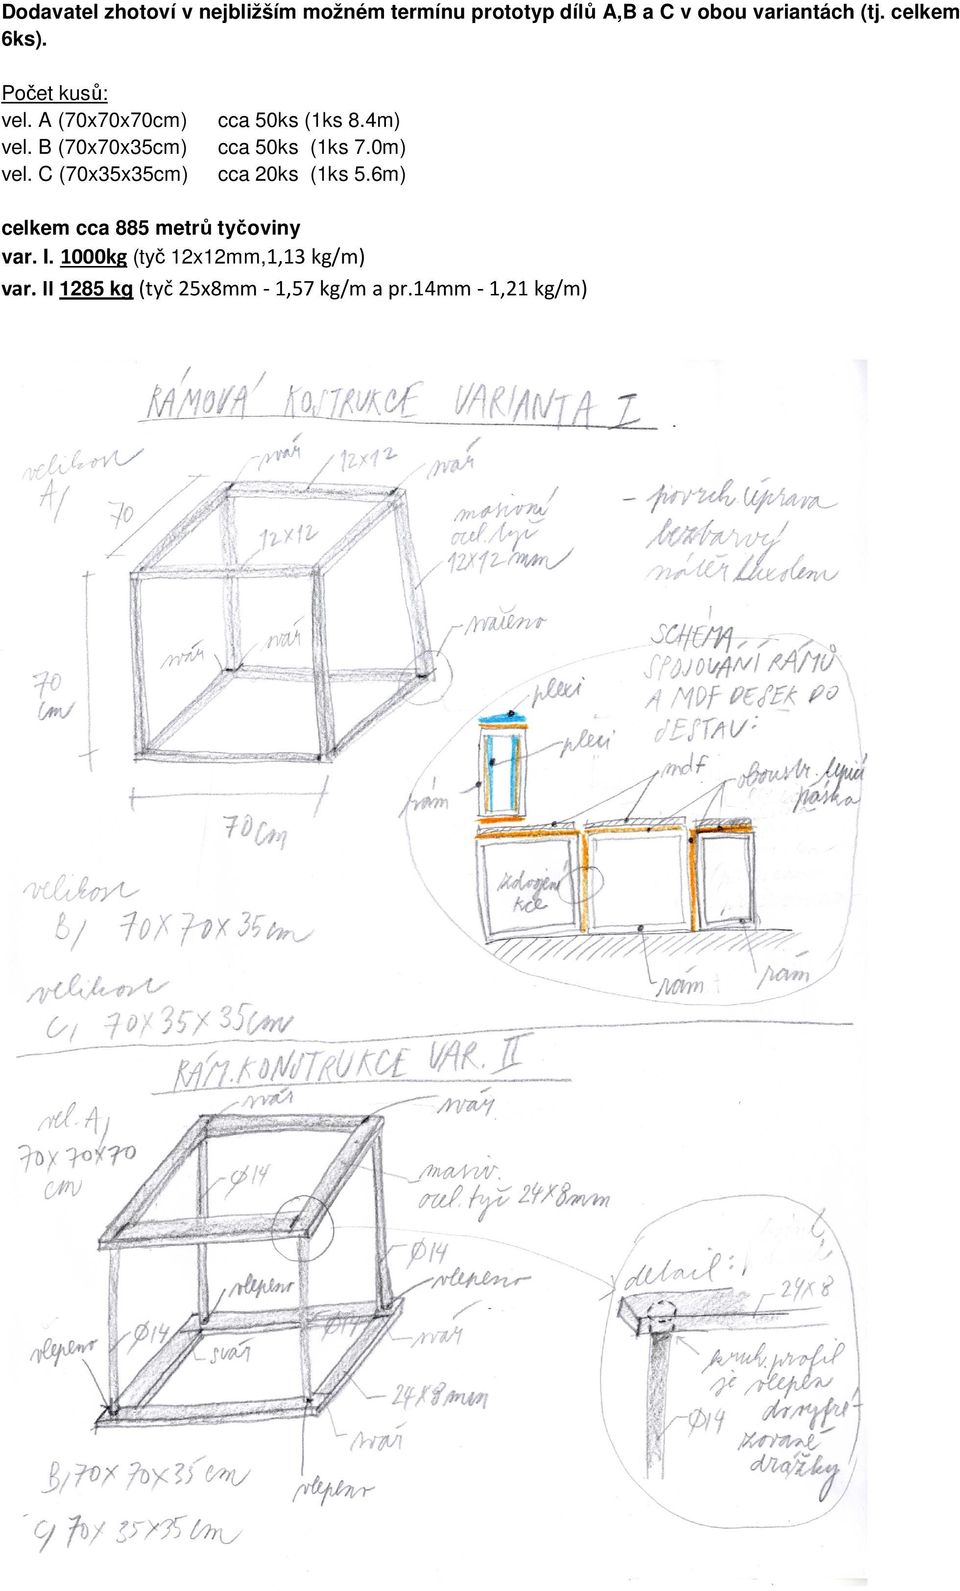 Dodavatel zhotoví v nejbližším možném termínu prototyp dílů A,B a C v obou variantách (tj. celkem
6ks).
Počet kusů:
vel. A (70x70x70cm) cca 50ks (1ks 8.4m)
vel. B (70x70x35cm) cca 50ks (1ks 7.0m)
vel. C (70x35x35cm) cca 20ks (1ks 5.6m)
celkem cca 885 metrů tyčoviny
var. I. 1000kg (tyč 12x12mm,1,13 kg/m)
var. II 1285 kg (tyč 25x8mm - 1,57 kg/m a pr.14mm - 1,21 kg/m)
RÁMOVÁ KOSTRUKCE VARIANTA I.
velikost
A/
70
svár
12x12
svár
12x12
masivní
ocel. tyč
12x12 mm
- povrch. úprava
bezbarvý
nátěr luxolem
svařeno
svár
svár
70
cm
70cm
SCHÉMA
SPOJOVÁNÍ RÁMŮ
A MDF DESEK DO
SESTAV:
plexi
plexi
mdf
oboustr. lepící
páska
rám
zdvojení
kce
rám
rám
velikost
B/ 70x70x35cm
velikost
C/ 70x35x35cm
RÁM. KONSTRUKCE VAR. II
vel. A/
70x70x70
cm
svár
svár
Ø14
masiv.
ocel. tyč 24x8mm
Ø14
vlepeno
vlepeno
vlepeno
Ø14
svár
Ø14
svár
24x8mm
svár
vlepeno
detail:
24x8
kruh. profil
je vlepen
do vyfré-
zované
drážky
Ø14
B/ 70x70x35cm
C/ 70x35x35cm